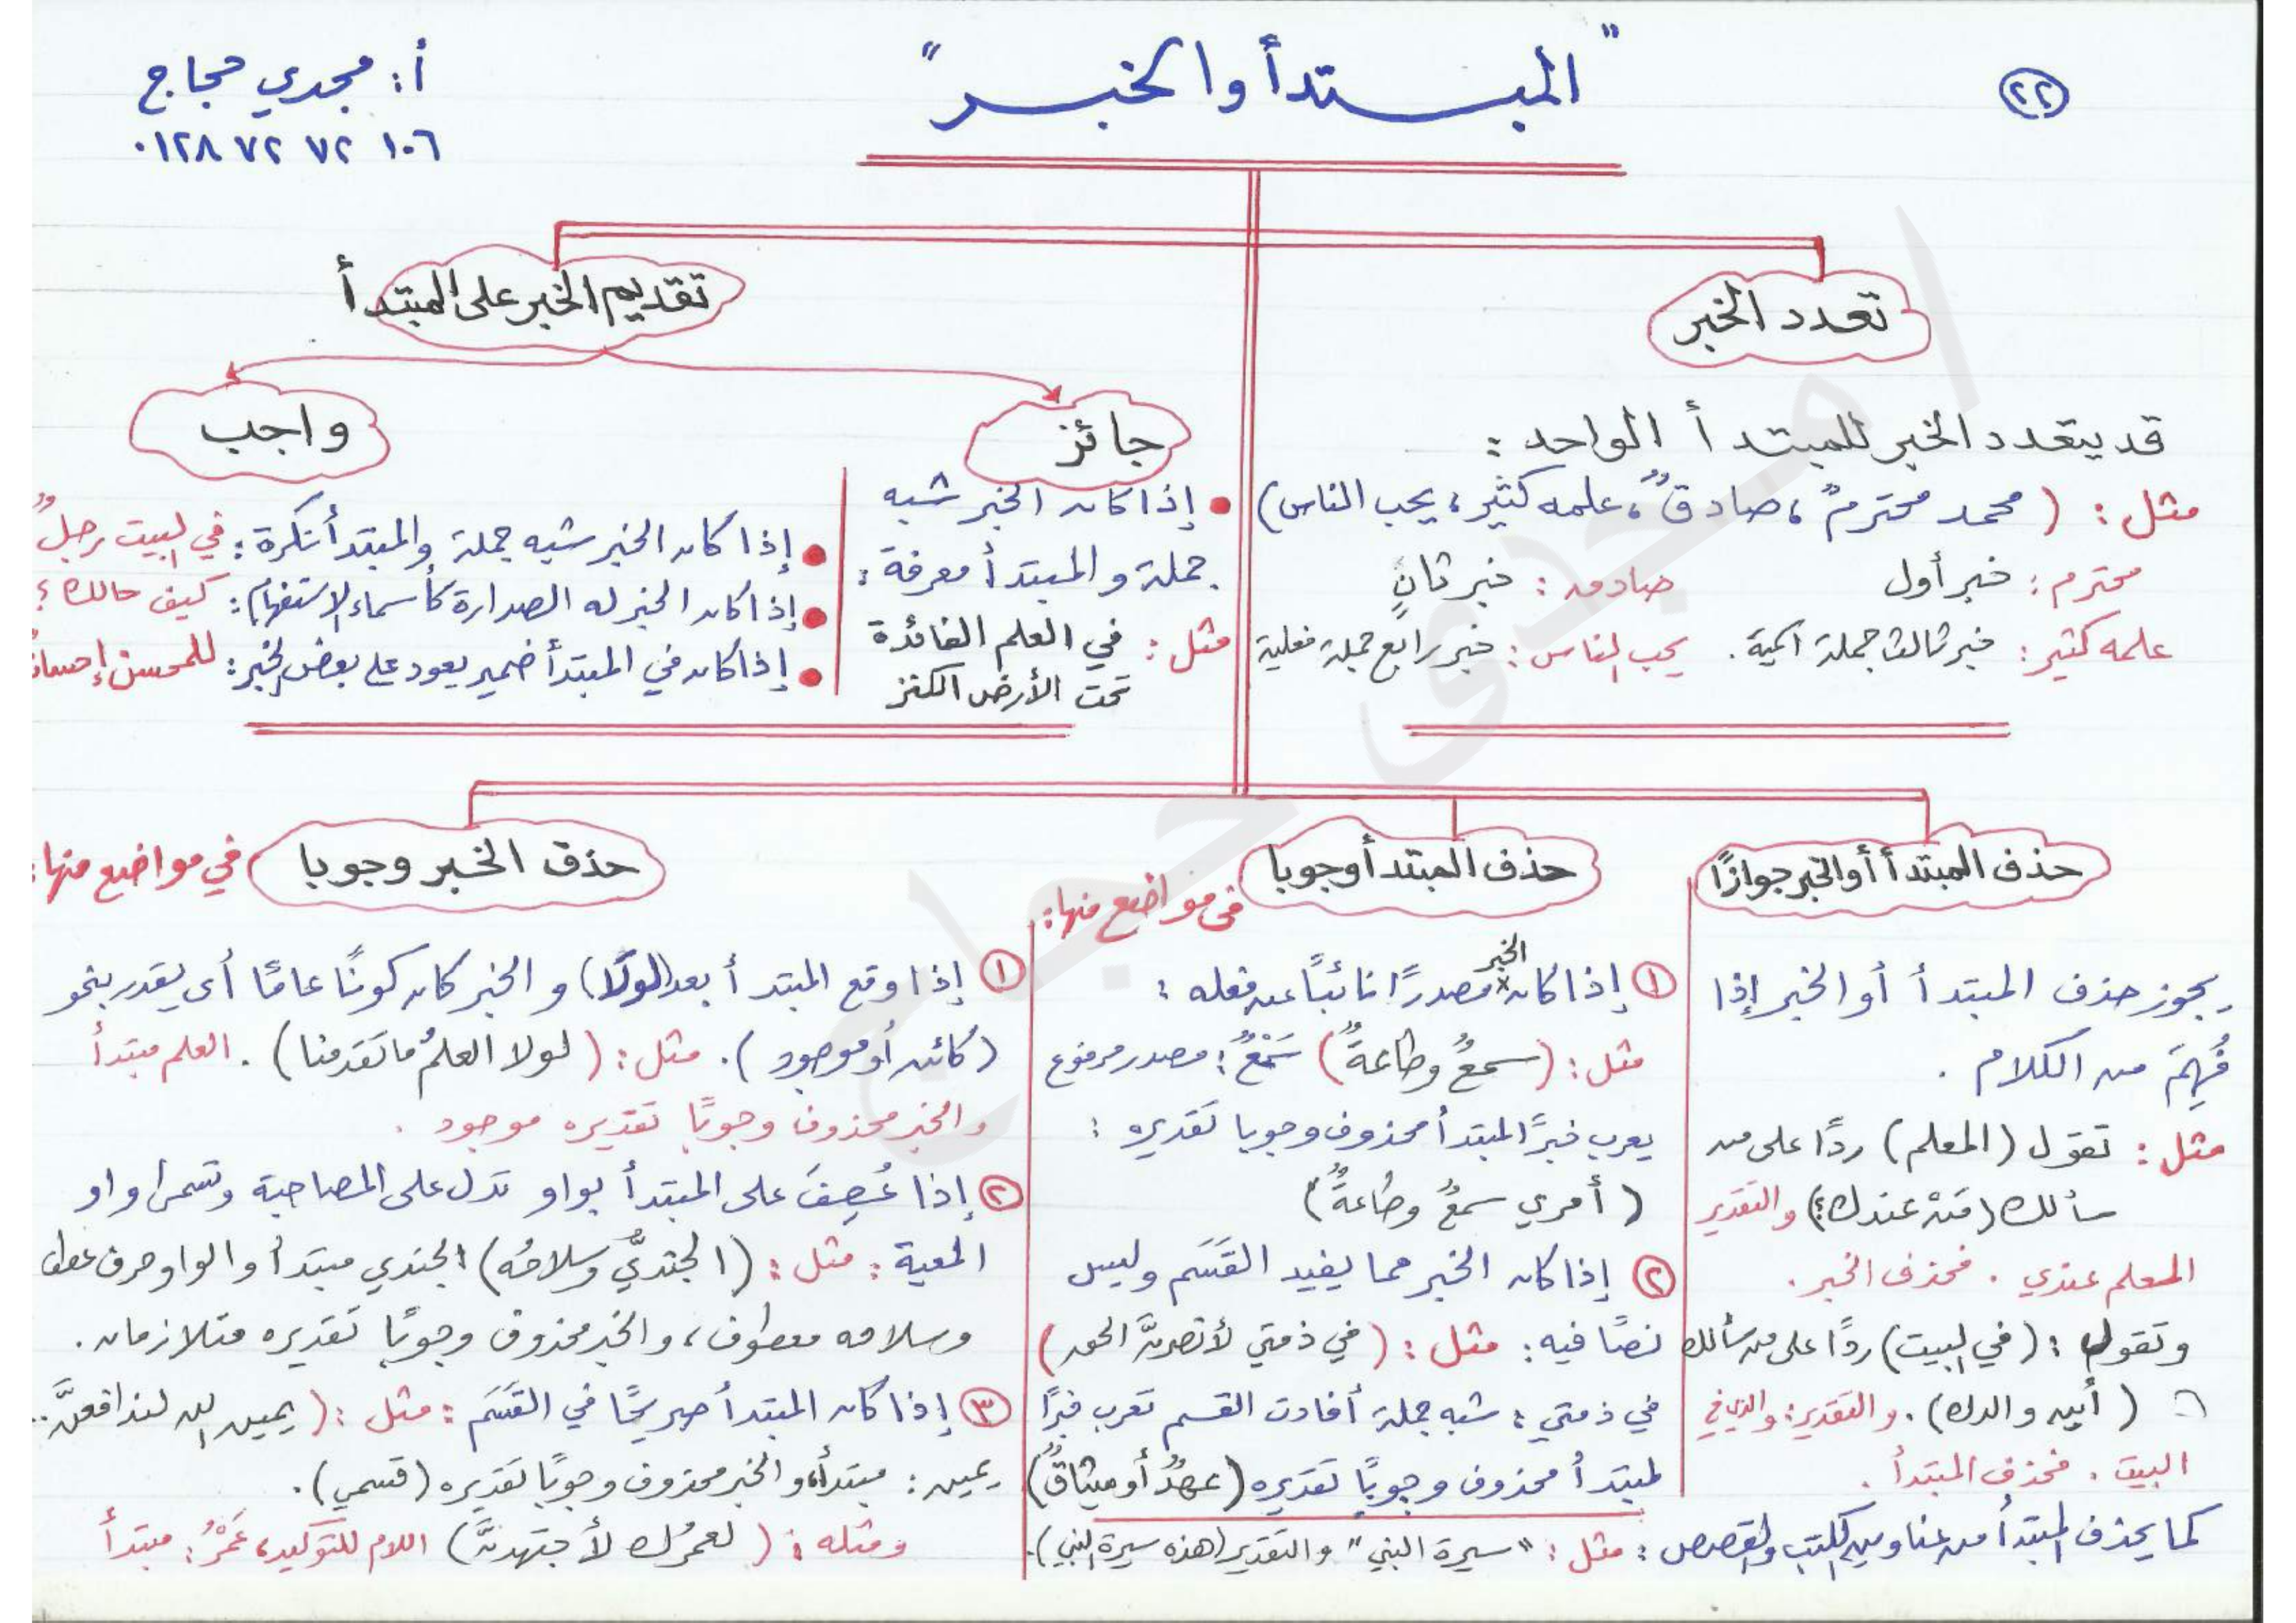 ٢٢
"المبتدأ والخبر"
أ: مجدي حجاج
٠١٢٨ ٧٢ ٧٢ ١٠٦
تعدد الخبر
قد يتعدد الخبر للمبتدأ الواحد :
مثل : ( محمد محترمٌ ، صادقٌ ، علمه كثير ، يحب الناس )
محترم : خبر أول
صادق : خبر ثانٍ
علمه كثير : خبر ثالث جملة اسمية .
يحب الناس : خبر رابع جملة فعلية
تقديم الخبر على المبتدأ
جائز
• إذا كان الخبر شبه
جملة والمبتدأ معرفة :
مثل : في العلم الفائدة
تحت الأرض الكنز
واجب
• إذا كان الخبر شبه جملة والمبتدأ نكرة : في البيت رجلٌ
• إذا كان الخبر له الصدارة كأسماء الاستفهام : كيف حالك ؟
• إذا كان في المبتدأ ضمير يعود على بعض الخبر : للمحسن
حذف المبتدأ أو الخبر جوازًا
يجوز حذف المبتدأ أو الخبر إذا
فُهِمَ من الكلام .
مثل : تقول (المعلم) ردًا على من
سألك (مَنْ عندك؟) والتقدير
المعلم عندي . فحذف الخبر .
وتقول : (في البيت) ردًا على من سألك
( أين والدك) . والتقدير : والدي في
البيت . فحذف المبتدأ .
كما يحذف المبتدأ من عناوين الكتب والقصص : مثل : "سيرة النبي" والتقدير (هذه سيرة النبي).
حذف المبتدأ وجوبا
في مواضع منها :
① إذا كان الخبر مصدرًا نائبًا عن فعله :
مثل : (سمعٌ وطاعةٌ) سَمْعٌ : مصدر مرفوع
يعرب خبرًا لمبتدأ محذوف وجوبا تقديره :
( أمري سمعٌ وطاعةٌ)
② إذا كان الخبر مما يفيد القَسَم وليس
نصًا فيه : مثل : (في ذمتي لأنصرنَّ الحق)
في ذمتي : شبه جملة أفادت القسم تعرب خبرًا
لمبتدأ محذوف وجوبًا تقديره (عهدٌ أو ميثاقٌ)
حذف الخبر وجوبا
في مواضع منها :
① إذا وقع المبتدأ بعد (لولا) والخبر كان كونًا عامًا أي يقدر بنحو
(كائن أو موجود ) . مثل : ( لولا العلمُ ما تقدمنا ) . العلم مبتدأ
والخبر محذوف وجوبًا تقديره موجود .
② إذا عُطِفَ على المبتدأ بواو تدل على المصاحبة وتسمى واو
المعية : مثل : (الجنديُّ وسلاحُه) الجندي مبتدأ والواو حرف عطف
وسلاحه معطوف ، والخبر محذوف وجوبًا تقديره متلازمان .
③ إذا كان المبتدأ صريحًا في القَسَم : مثل : ( يمين الله لندافعنَّ ..
يمين : مبتدأ ، والخبر محذوف وجوبًا تقديره (قسمي) .
ومثله : ( لعمرُك لأجتهدنَّ) اللام للتوكيد ، عَمْرُ : مبتدأ
مجدى حجاج